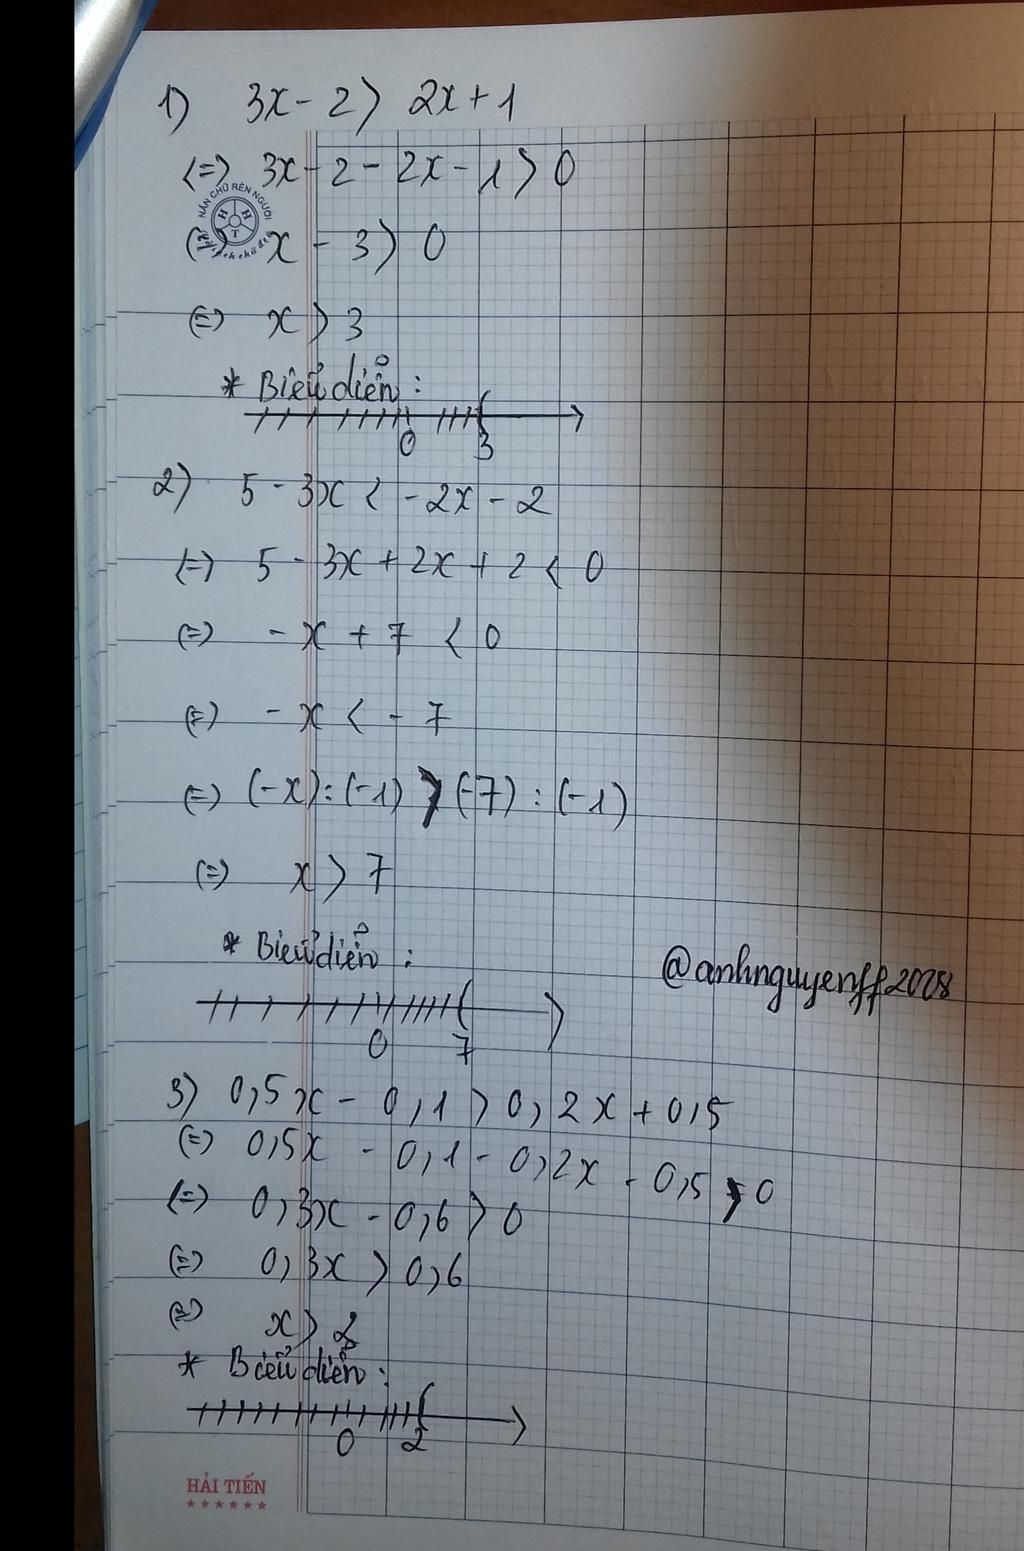 1) 3x - 2 > 2x + 1
(=) 3x - 2 - 2x - 1 > 0
NẮN CHỮ RÈN NGƯỜI
H H T
(=) x - 3 > 0
(=) x > 3
* Biểu diễn :
0 3
2) 5 - 3x < - 2x - 2
(=) 5 - 3x + 2x + 2 < 0
(=) - x + 7 < 0
(=) - x < - 7
(=) (-x) : (-1) > (-7) : (-1)
(=) x > 7
* Biểu diễn :
@anhnguyenff2008
0 7
3) 0,5x - 0,1 > 0,2x + 0,5
(=) 0,5x - 0,1 - 0,2x - 0,5 > 0
(=) 0,3x - 0,6 > 0
(=) 0,3x > 0,6
(=) x > 2
* Biểu diễn :
0 2
HẢI TIẾN